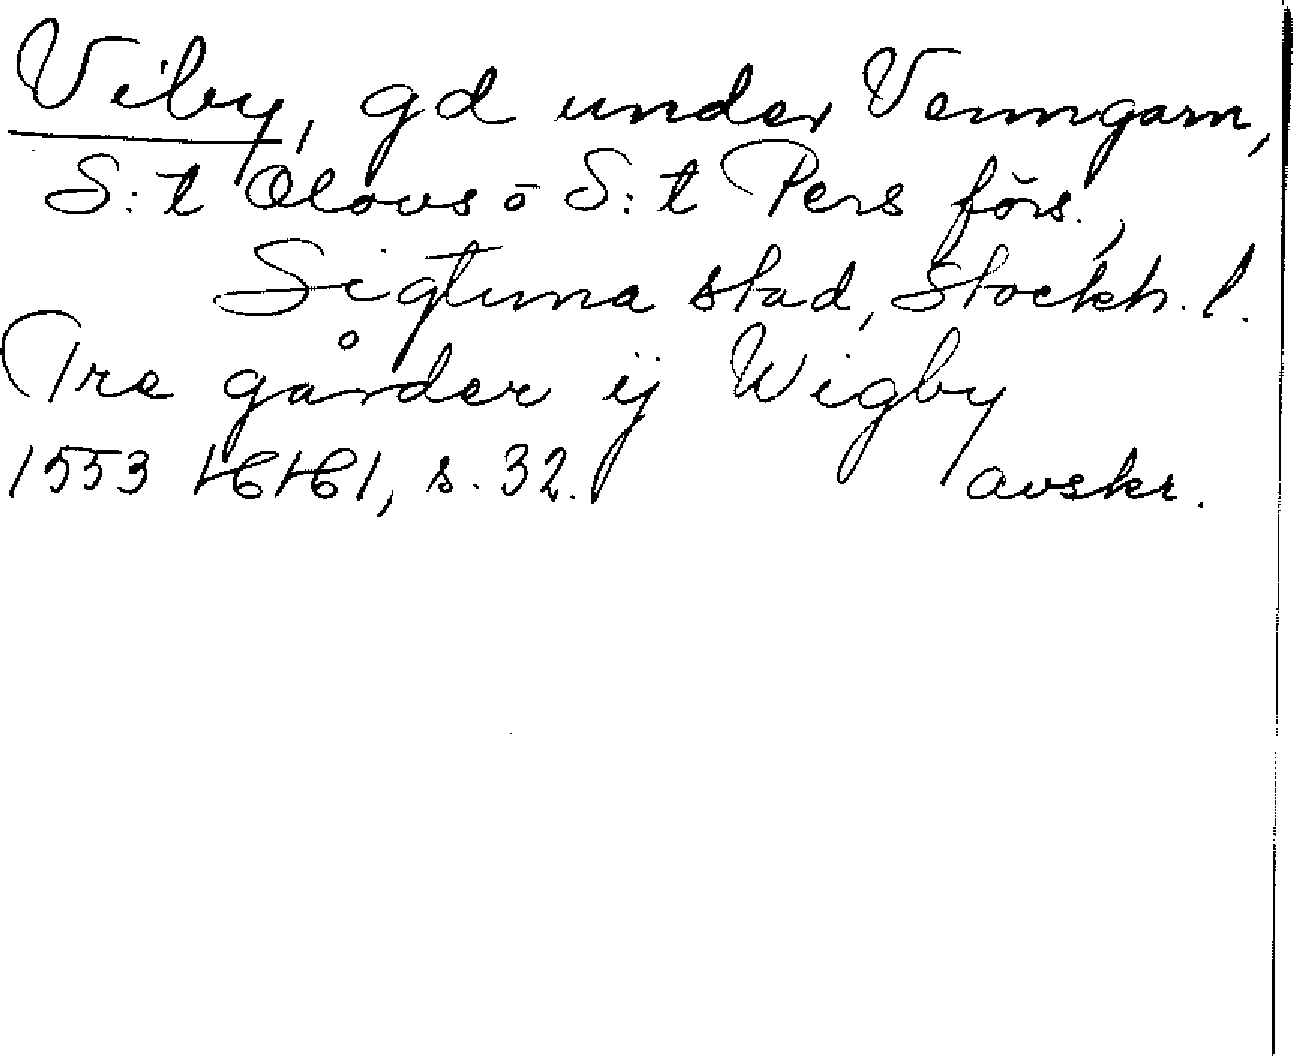 Viby, gd under Venngarn,
S:t Olovs o S:t Pers förs.,
Sigtuna stad, Stockh. l.
Tre gårder ij Wigby
1553 , s. 32. avskr.